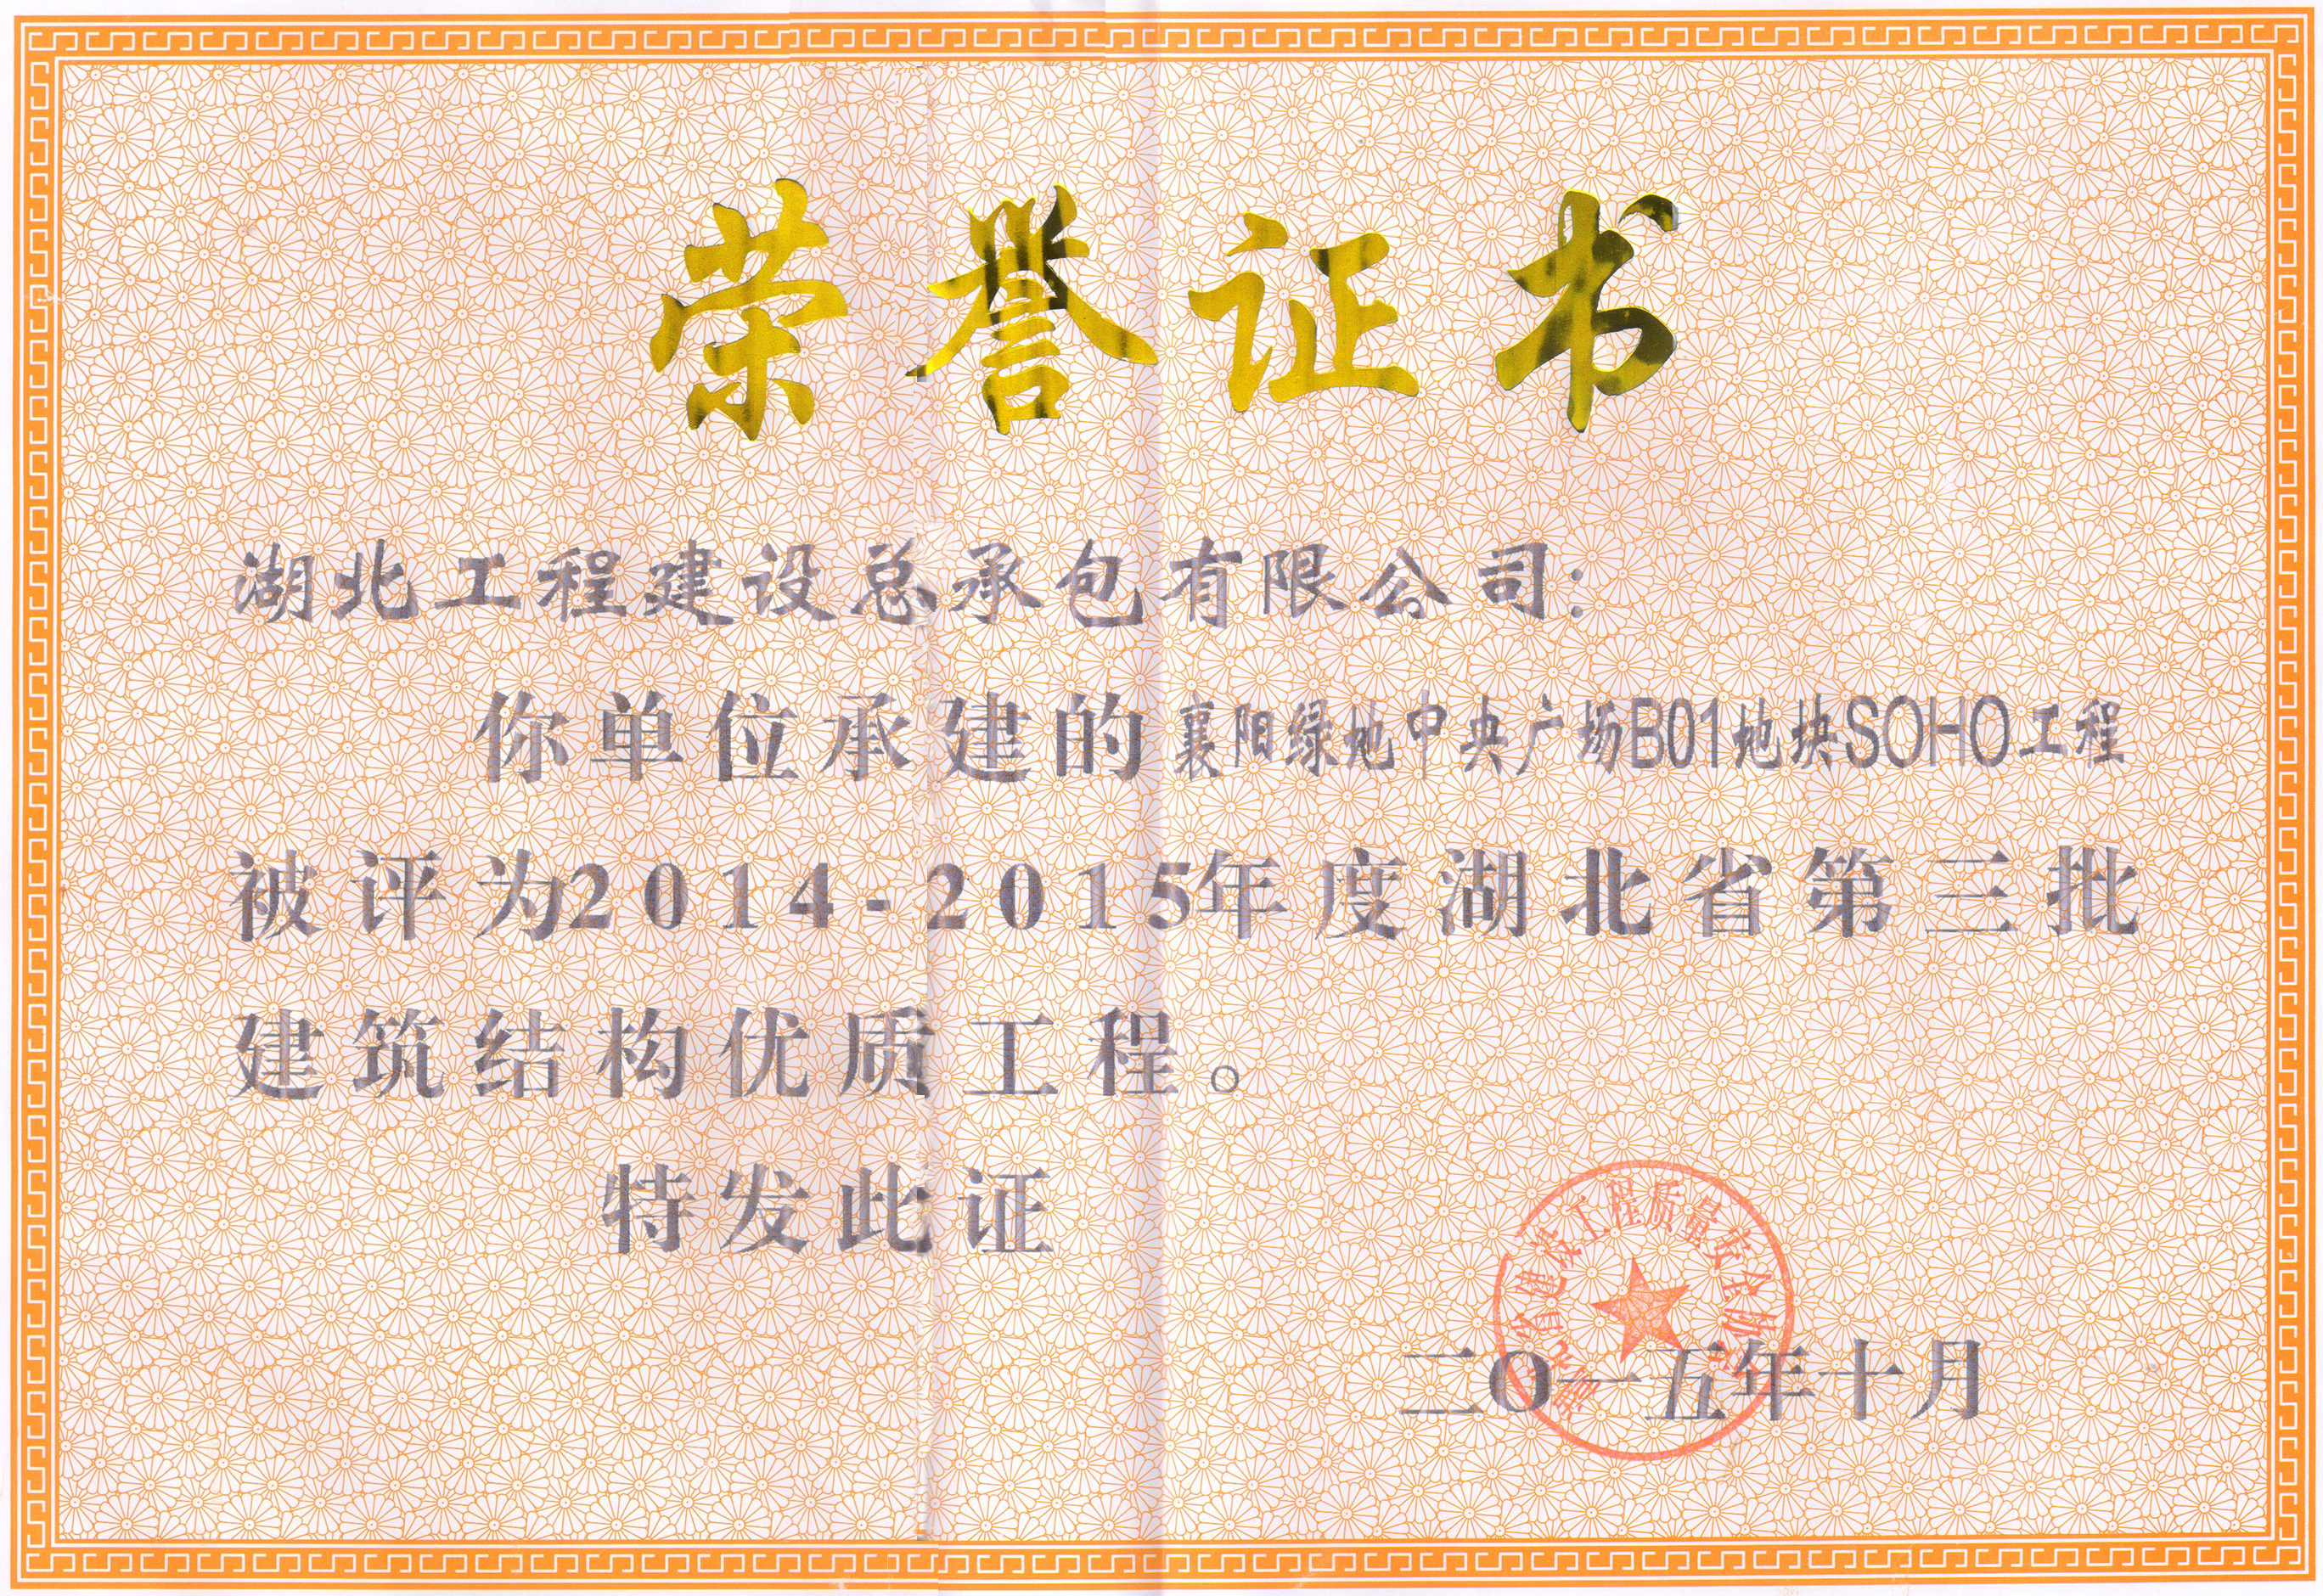 荣誉证书
湖北工程建设总承包有限公司：
你单位承建的襄阳绿地中央广场B01地块SOHO工程
被评为2014-2015年度湖北省第三批
建筑结构优质工程。
特发此证
湖北省建设工程质量安全协会
二O一五年十月